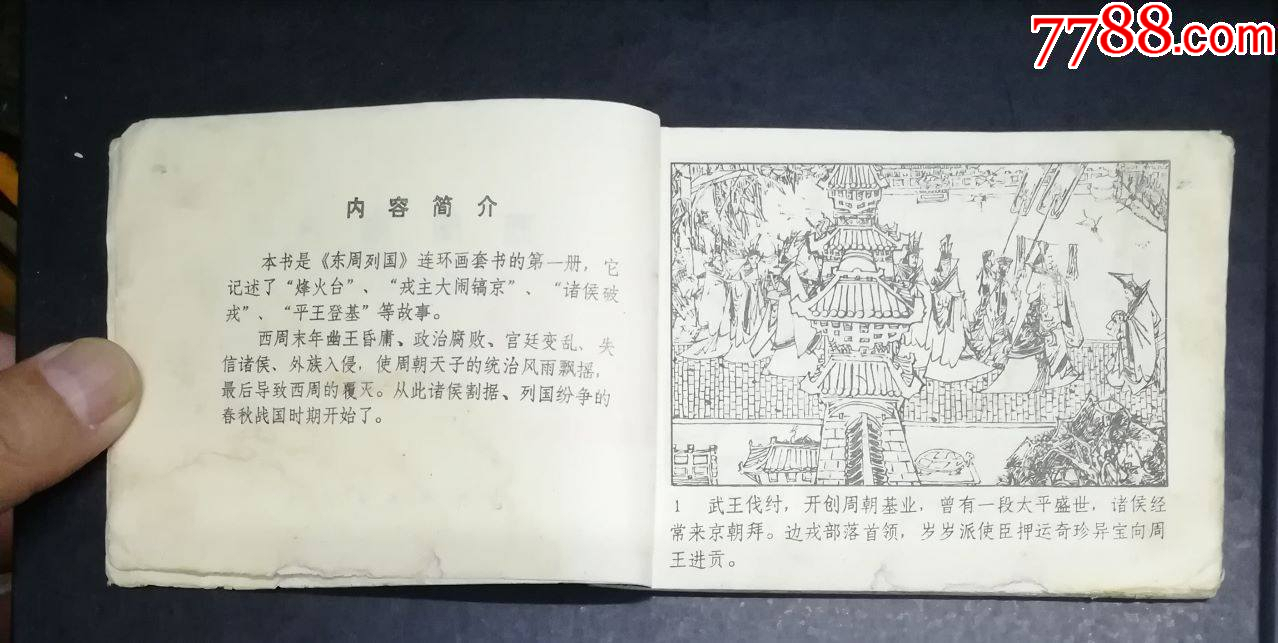 7788.com
内容简介
本书是《东周列国》连环画套书的第一册，它
记述了“烽火台”、“戎主大闹镐京”、“诸侯破
戎”、“平王登基”等故事。
西周末年幽王昏庸、政治腐败、宫廷变乱、失
信诸侯、外族入侵，使周朝天子的统治风雨飘摇，
最后导致西周的覆灭。从此诸侯割据、列国纷争的
春秋战国时期开始了。
1 武王伐纣，开创周朝基业，曾有一段太平盛世，诸侯经
常来京朝拜。边戎部落首领，岁岁派使臣押运奇珍异宝向周
王进贡。